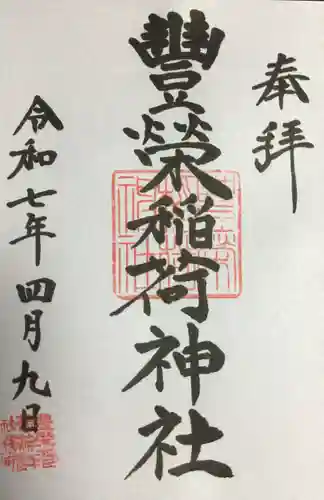 奉拝
豐榮稲荷神社
令和七年四月九日